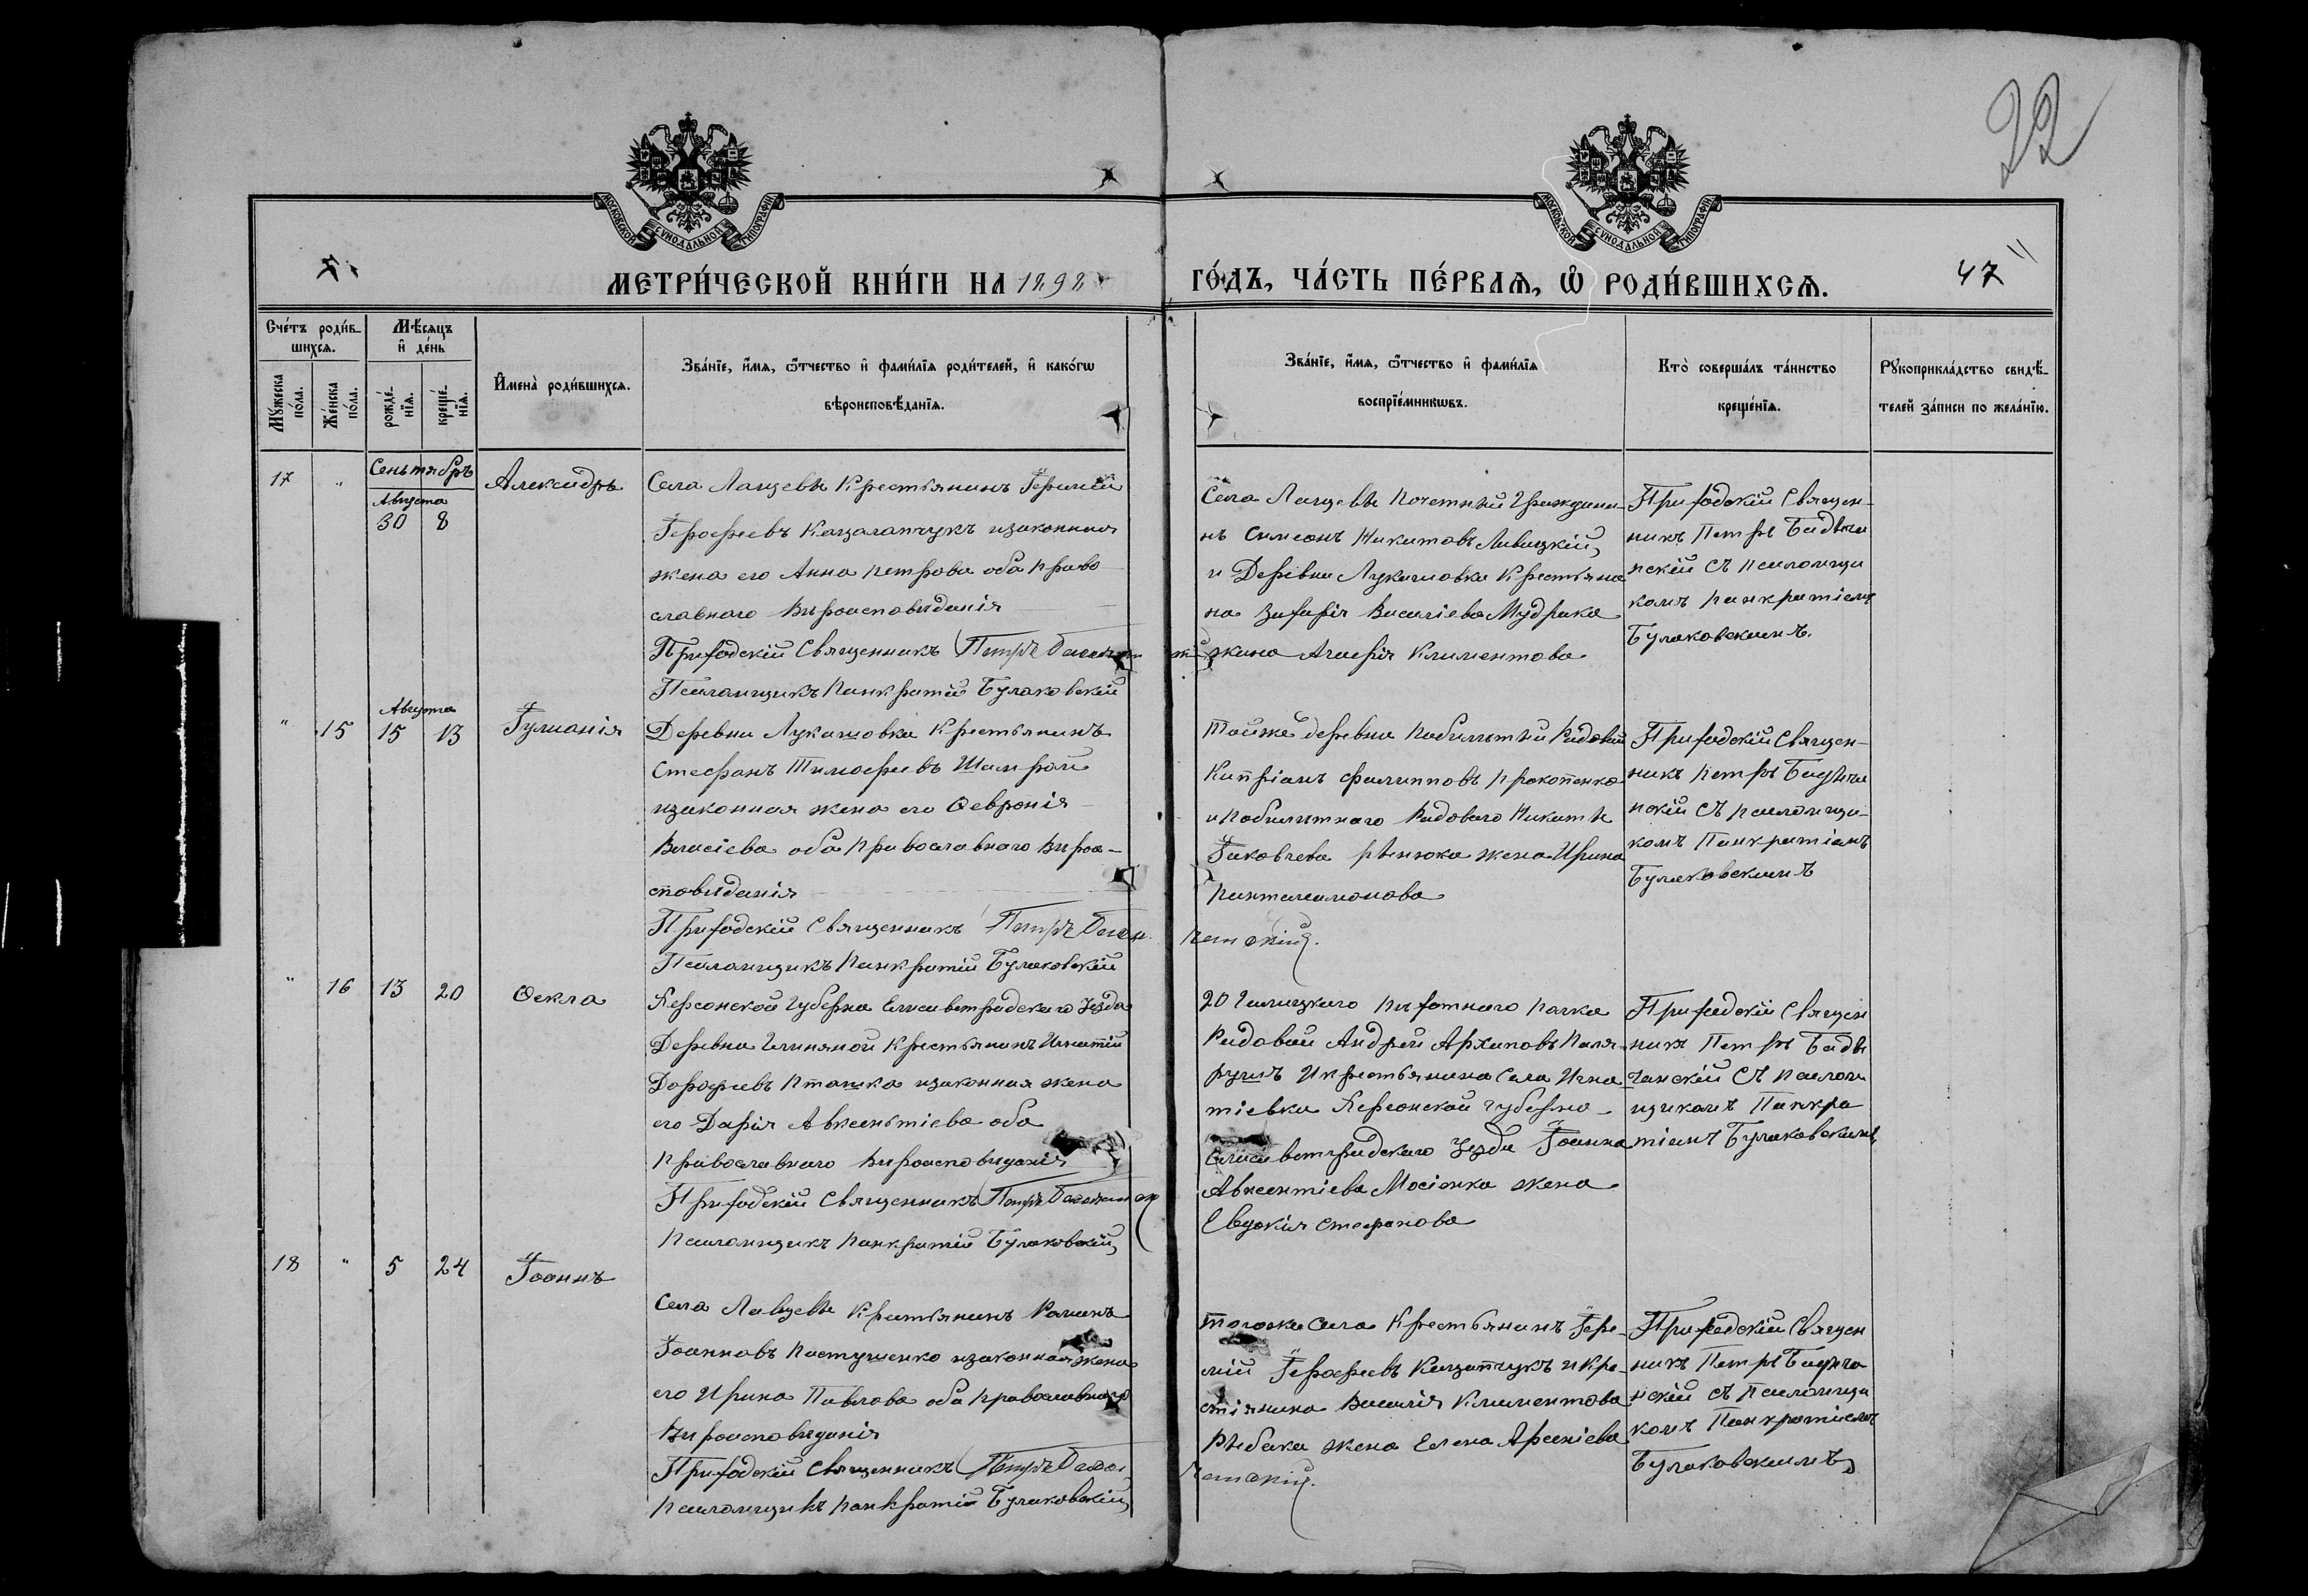 22
МОСКОВСКОЙ СѴНОДАЛЬНОЙ ТИПОГРАФІИ
МОСКОВСКОЙ СѴНОДАЛЬНОЙ ТИПОГРАФІИ
МЕТРИ́ЧЕСКОЙ КНИ́ГИ НА 1892
ГО́ДЪ, ЧА́СТЬ ПЕ́РВАѦ, Ѡ҆ РОДИ́ВШИХСѦ.
47
Сче́тъ роди́в-
шихсѧ.
Мѣ́сѧцъ
и҆ де́нь
Мꙋ́жеска по́ла.
Же́нска по́ла.
рожде́-
нїѧ.
креще́-
нїѧ.
И҆мена̀ роди́вшихсѧ.
Зва́нїе, и҆́мѧ, ѻ҆́тчество и҆ фами́лїѧ роди́телей, и҆ како́гѡ
вѣроисповѣ́данїѧ.
Зва́нїе, и҆́мѧ, ѻ҆́тчество и҆ фами́лїѧ
воспрїе́мникѡвъ.
Кто̀ соверша́лъ та́инство
креще́нїѧ.
Рꙋкоприкла́дство свидѣ́-
телей за́писи по жела́нїю.
17
"
Сеньтябръ
Августа
30 8
Александръ
Села Крестьянинъ
Іерофеевъ изаконная
жена его Анна Петрова оба право
славнаго Вероисповеданія
Приходскій Священникъ Петръ
Псаломщикъ Панкратій Булаковскій
Села Почетный Гражданин-
нъ Симеонъ Никитовъ Левицкій
и Деревни Лукашовки Крестьяни
на Захарія Василіева Мудрака
жена Агафія Климентова
Приходскій Священ-
никъ Петръ
нскій съ псаломщи
комъ Панкратіемъ
Булаковскимъ.
" 15
Августа
15 13
Іуліанія
Деревни Лукашовки Крестьянинъ
Стефанъ Тимофеевъ Шамрай
изаконная жена его Ѳевронія
Власіева оба Православнаго Верои-
споведанія
Приходскій Священникъ Петръ
Псаломщикъ Панкратій Булаковскій
Тойже деревни Рядовой
Кипріанъ Филипповъ Прокопенко
и Рядоваго Никиты
Іаковлева жена Ирина
Пантелимонова
Приходскій Священ-
никъ Петръ
нскій съ псаломщи-
комъ Панкратіемъ
Булаковскимъ
" 16 13 20
Ѳекла
Херсонской Губерніи Елисаветградскаго Уезда
Деревни Глиняной Крестьянинъ Игнатій
Дорофеевъ Пташка изаконная жена
его Дарія Авксентіева оба
православнаго Вероисповеданія
Приходскій Священникъ Петръ
Псаломщикъ Панкратій Булаковскій
20 Галицкаго Пехотнаго Полка
Рядовой Андрей Архиповъ
Икрестьянина Села Игна
тіевки Херсонской губерніи
Елисаветградскаго Уезда Іоанна
Авксентіева Мосіенка жена
Евдокія Стефанова
Приходскій Священ
никъ Петръ
съ псалом
щикомъ Панкра
тіемъ Булаковскимъ
18 " 5 24
Іоаннъ
Села Крестьянинъ Романъ
Іоанновъ Пастушенко изаконная жена
его Ирина Павлова оба православнаго
Вероисповеданія
Приходскій Священникъ Петръ
Псаломщикъ Панкратій Булаковскій
Тогоже Села Крестьянинъ Іере-
мій Іерофеевъ икре-
стіянина Василія Климентова
жена Елена Арсеніева
Приходскій Священ
никъ Петръ
нскій съ Псаломщи
комъ Панкратіемъ
Булаковскимъ